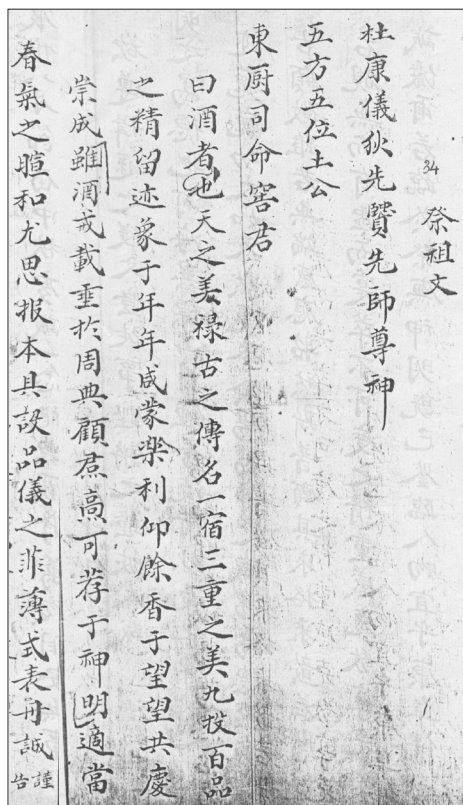 34 祭祖文
杜康儀狄先賢先師尊神
五方五位土公
東厨司命窖君
曰酒者也天之美祿古之傳名一宿三重之美九投百品
之精留迹蒙于年年咸蒙楽利仰餘香于望望共慶
崇成雖酒戒載垂扵周典顧焄可荐于神明適當
春氣之暄和尤思报本具設品儀之菲薄式表丹誠謹告